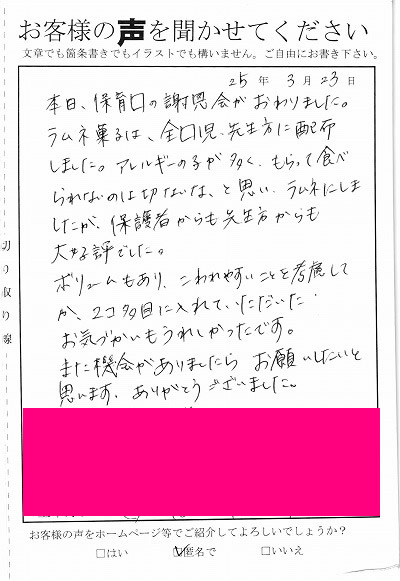 お客様の声を聞かせてください
文章でも箇条書きでもイラストでも構いません。ご自由にお書き下さい。
25年 3月23日
本日、保育口の謝恩会がおわりました。
ラムネ菓子は、全口児、先生方に配布
しました。アレルギーの子が多く、もらって食べ
られないのは切ないな、と思い、ラムネにしま
したが、保護者からも先生方からも
大好評でした。
ボリュームもあり、こわれやすいことを考慮して
か、2コ多目に入れて、いただいた
お気づかいもうれしかったです。
また機会がありましたら お願いしたいと
思います。ありがとうございました。
切り取り線
お客様の声をホームページ等でご紹介してよろしいでしょうか?
□はい ☑匿名で □いいえ